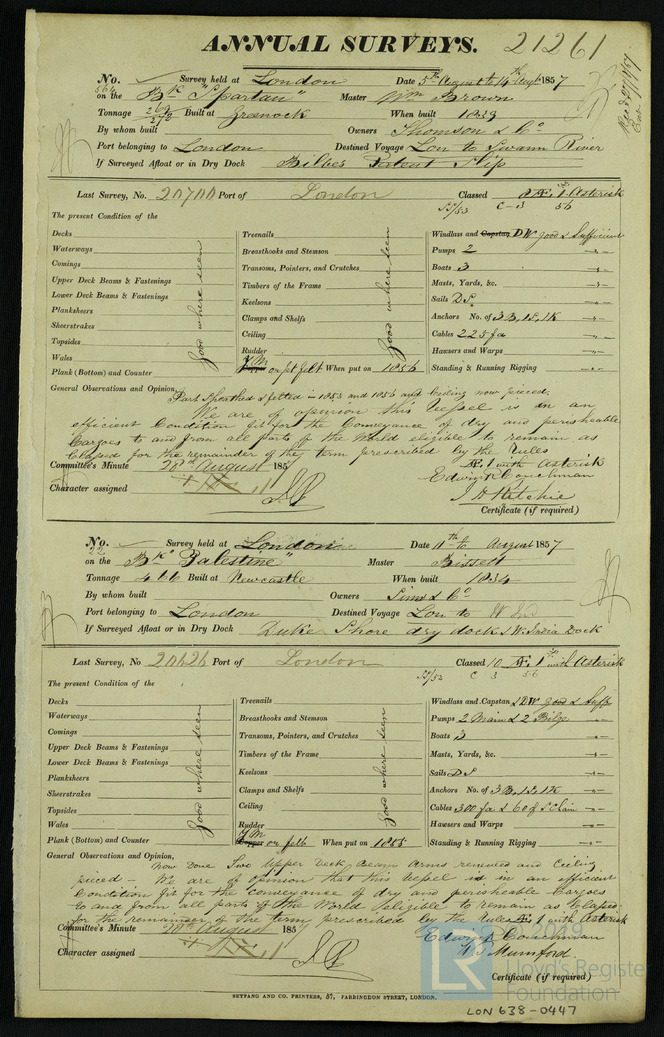 ANNUAL SURVEYS. 21261
No. 564 Survey held at London Date 5th August to 14th Augt 1857
on the Bk "Spartan" Master Wm Brown
Tonnage 269 270 Built at Greenock When built 1839
By whom built Owners Thomson & Co
Port belonging to London Destined Voyage Lon to Swann River
If Surveyed Afloat or in Dry Dock Bilbes Patent Slip
Last Survey, No. 20700 Port of London Classed Æ 1 Asterisk
55/53 C-3 56
The present Condition of the
Decks
Waterways
Comings
Upper Deck Beams & Fastenings
Lower Deck Beams & Fastenings
Planksheers
Sheerstrakes
Topsides
Wales
Plank (Bottom) and Counter
Good where seen
Treenails
Breasthooks and Stemson
Transoms, Pointers, and Crutches
Timbers of the Frame
Keelsons
Clamps and Shelfs
Ceiling
Rudder
Y.M. on pt felt When put on 1856
Good where seen
Windlass and Capstan DW good & Sufficient
Pumps 2
Boats 3
Masts, Yards, &c.
Sails DS
Anchors No. of 3B, 1S, 1K
Cables 225 fa
Hawsers and Warps
Standing & Running Rigging
General Observations and Opinion, Part Sheathed & felted in 1853 and 1056 and Ceiling now pieced.
We are of opinion this Vessel is in an
efficient Condition fit for the Conveyance of dry and perishable
Cargoes to and from all parts of the World eligible to remain as
Classed for the remainder of the term prescribed by the Rules
Æ 1 with Asterisk
Committee's Minute 28th August 185
Edwin Couchman
Character assigned
J H Ritchie
Certificate (if required)
No. 22 Survey held at London Date 11th to August 1857
on the Bk "Palestine" Master Bissett
Tonnage 466 Built at Newcastle When built 1834
By whom built Owners Sims & Co
Port belonging to London Destined Voyage Lon to W In
If Surveyed Afloat or in Dry Dock Duke Shore dry dock & W. India Dock
Last Survey, No 20626 Port of London Classed 10 Æ 1 with Asterisk
55/53 C 3 56
The present Condition of the
Decks
Waterways
Comings
Upper Deck Beams & Fastenings
Lower Deck Beams & Fastenings
Planksheers
Sheerstrakes
Topsides
Wales
Plank (Bottom) and Counter
Good where seen
Treenails
Breasthooks and Stemson
Transoms, Pointers, and Crutches
Timbers of the Frame
Keelsons
Clamps and Shelfs
Ceiling
Rudder
Y.M. Copper on felt When put on 1855
Good where seen
Windlass and Capstan 1DW good & Suff
Pumps 2 Main & 2 Bilge
Boats 3
Masts, Yards, &c.
Sails DS
Anchors No. of 3B, 1S, 1K
Cables 300 fa & 60 of S Chain
Hawsers and Warps
Standing & Running Rigging
General Observations and Opinion,
Now Done Two Upper Deck beam Arms renewed and Ceiling
pieced - We are of opinion that this Vessel is in an efficient
Condition fit for the conveyance of dry and perishable Cargoes
to and from all parts of the World & eligible to remain as Classed
for the remainder of the term prescribed by the Rules Æ 1 with Asterisk
Committee's Minute 28th August 1857
Edwin Couchman
Mumford
Character assigned
Certificate (if required)
SEYFANG AND CO. PRINTERS, 57, FARRINGDON STREET, LONDON.
© 2019
LR Lloyd's Register
Foundation
LON 638-0447